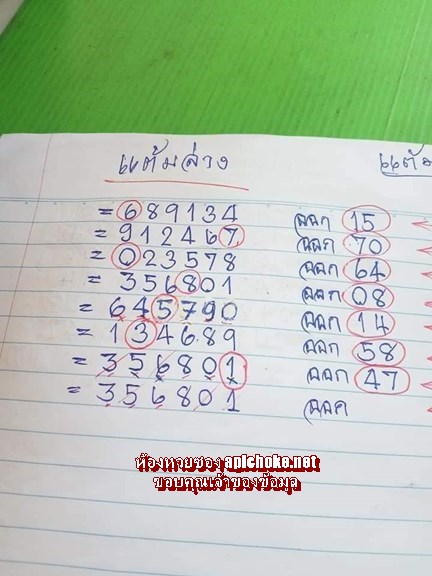 แต้มล่าง
แต้ม
= 689134 ออก 15
= 912467 ออก 70
= 023578 ออก 64
= 356801 ออก 08
= 645790 ออก 14
= 134689 ออก 58
= 356801 ออก 47
= 356801 ออก
ห้องหวยซอง apichoke.net
ขอบคุณเจ้าของข้อมูล